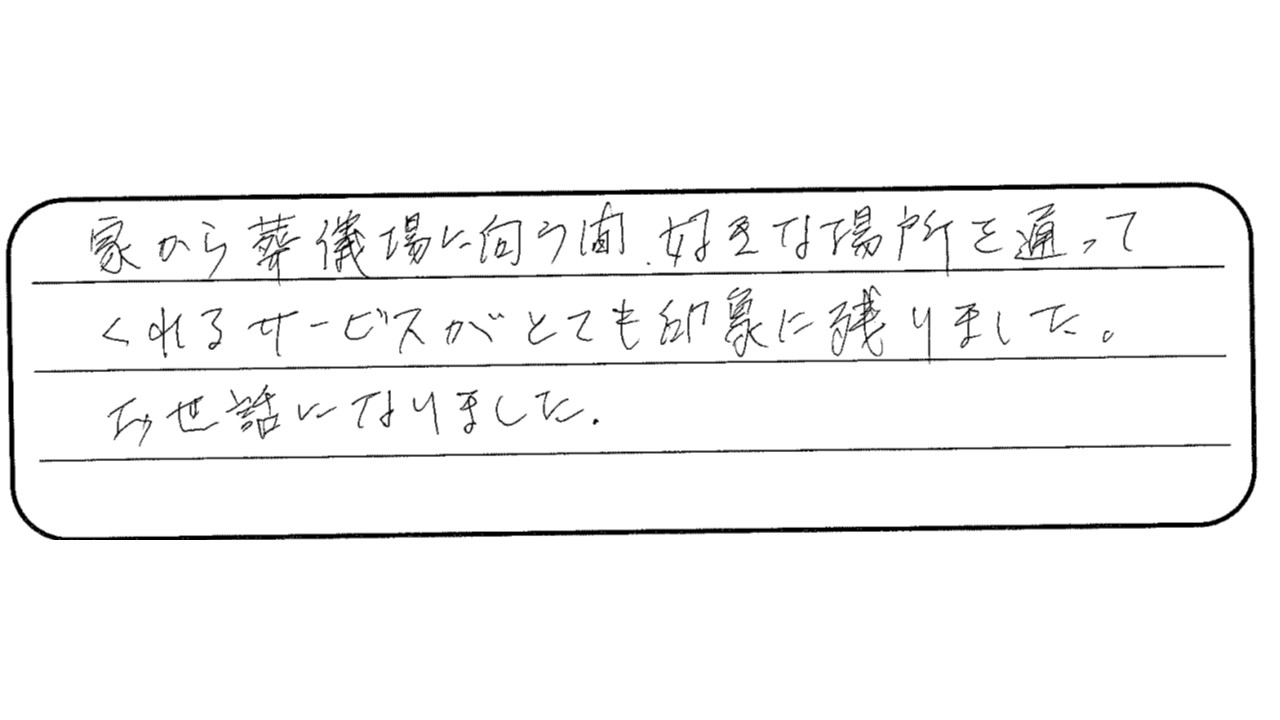 家から葬儀場に向う間、好きな場所を通って
くれるサービスがとても印象に残りました。
お世話になりました.